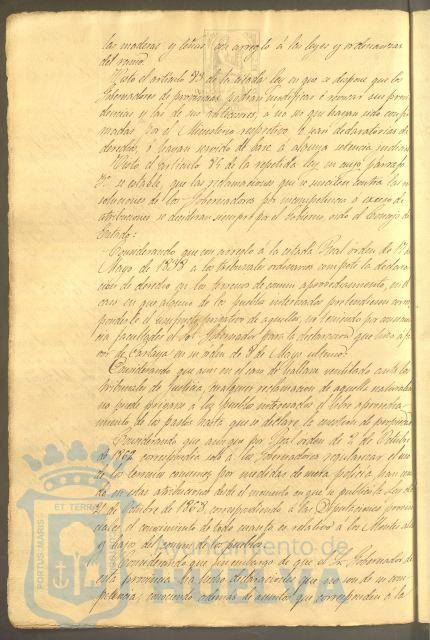 las maderas y leñas con arreglo á las leyes y ordenanzas
del ramo.
Visto el artículo de la citada ley en que se dispone que los
Gobernadores de provincia podrán modificar ó revocar sus provi-
dencias y las de sus antecesores, a no ser que hayan sido confir-
madas por el Ministerio respectivo, ó sean declaratorias de
derechos, ó hayan servido de base á alguna sentencia judicial
Visto el artículo de la repetida ley, en cuyo párrafo
se establece, que las reclamaciones que se susciten contra las re-
soluciones de los Gobernadores por incompetencia ó exceso de
atribuciones se decidirán siempre por el Gobierno oido el Consejo de
Estado:
Considerando que con arreglo a la citada Real orden de 17 de
Mayo de 1838 a los tribunales ordinarios compete la declara-
ción de derecho en los terrenos de comun aprovechamiento, en el
caso en que alguno de los pueblos interesados pretendiera corres-
ponderle el usufructo privativo de aquellos, no teniendo por consecuen-
cia facultades el Sor. Gobernador para la declaración que hizo á fa-
vor de Cartaya en su orden de de Mayo ultimo:
Considerando que aun en el caso de hallarse ventilado ante los
tribunales de Justicia, cualquier reclamacion de aquella naturaleza
no puede privarse a los pueblos interesados el libre aprovecha-
miento de los pastos hasta que se declare la cuestion de propiedad
Considerando que aunque por Real orden de 2 de Octubre
de 1862 correspondia solo a los Gobernadores regularizar el uso
de los terrenos comunes por medidas de mera policia, han
en estas atribuciones desde el momento en que se publicó la Ley de
21 de Octubre de 1868, correspondiendo á las Diputaciones provin-
ciales el conocimiento de todo cuanto es relativo á los Montes
del comun de los pueblos.
Considerando que sin embargo de que el Sr. Gobernador de
esta provincia ha hecho declaraciones que no son de su com-
petencia, conociendo ademas de asuntos que corresponden á la
PORTUS MARIS ET TERRAE
Ayuntamiento de